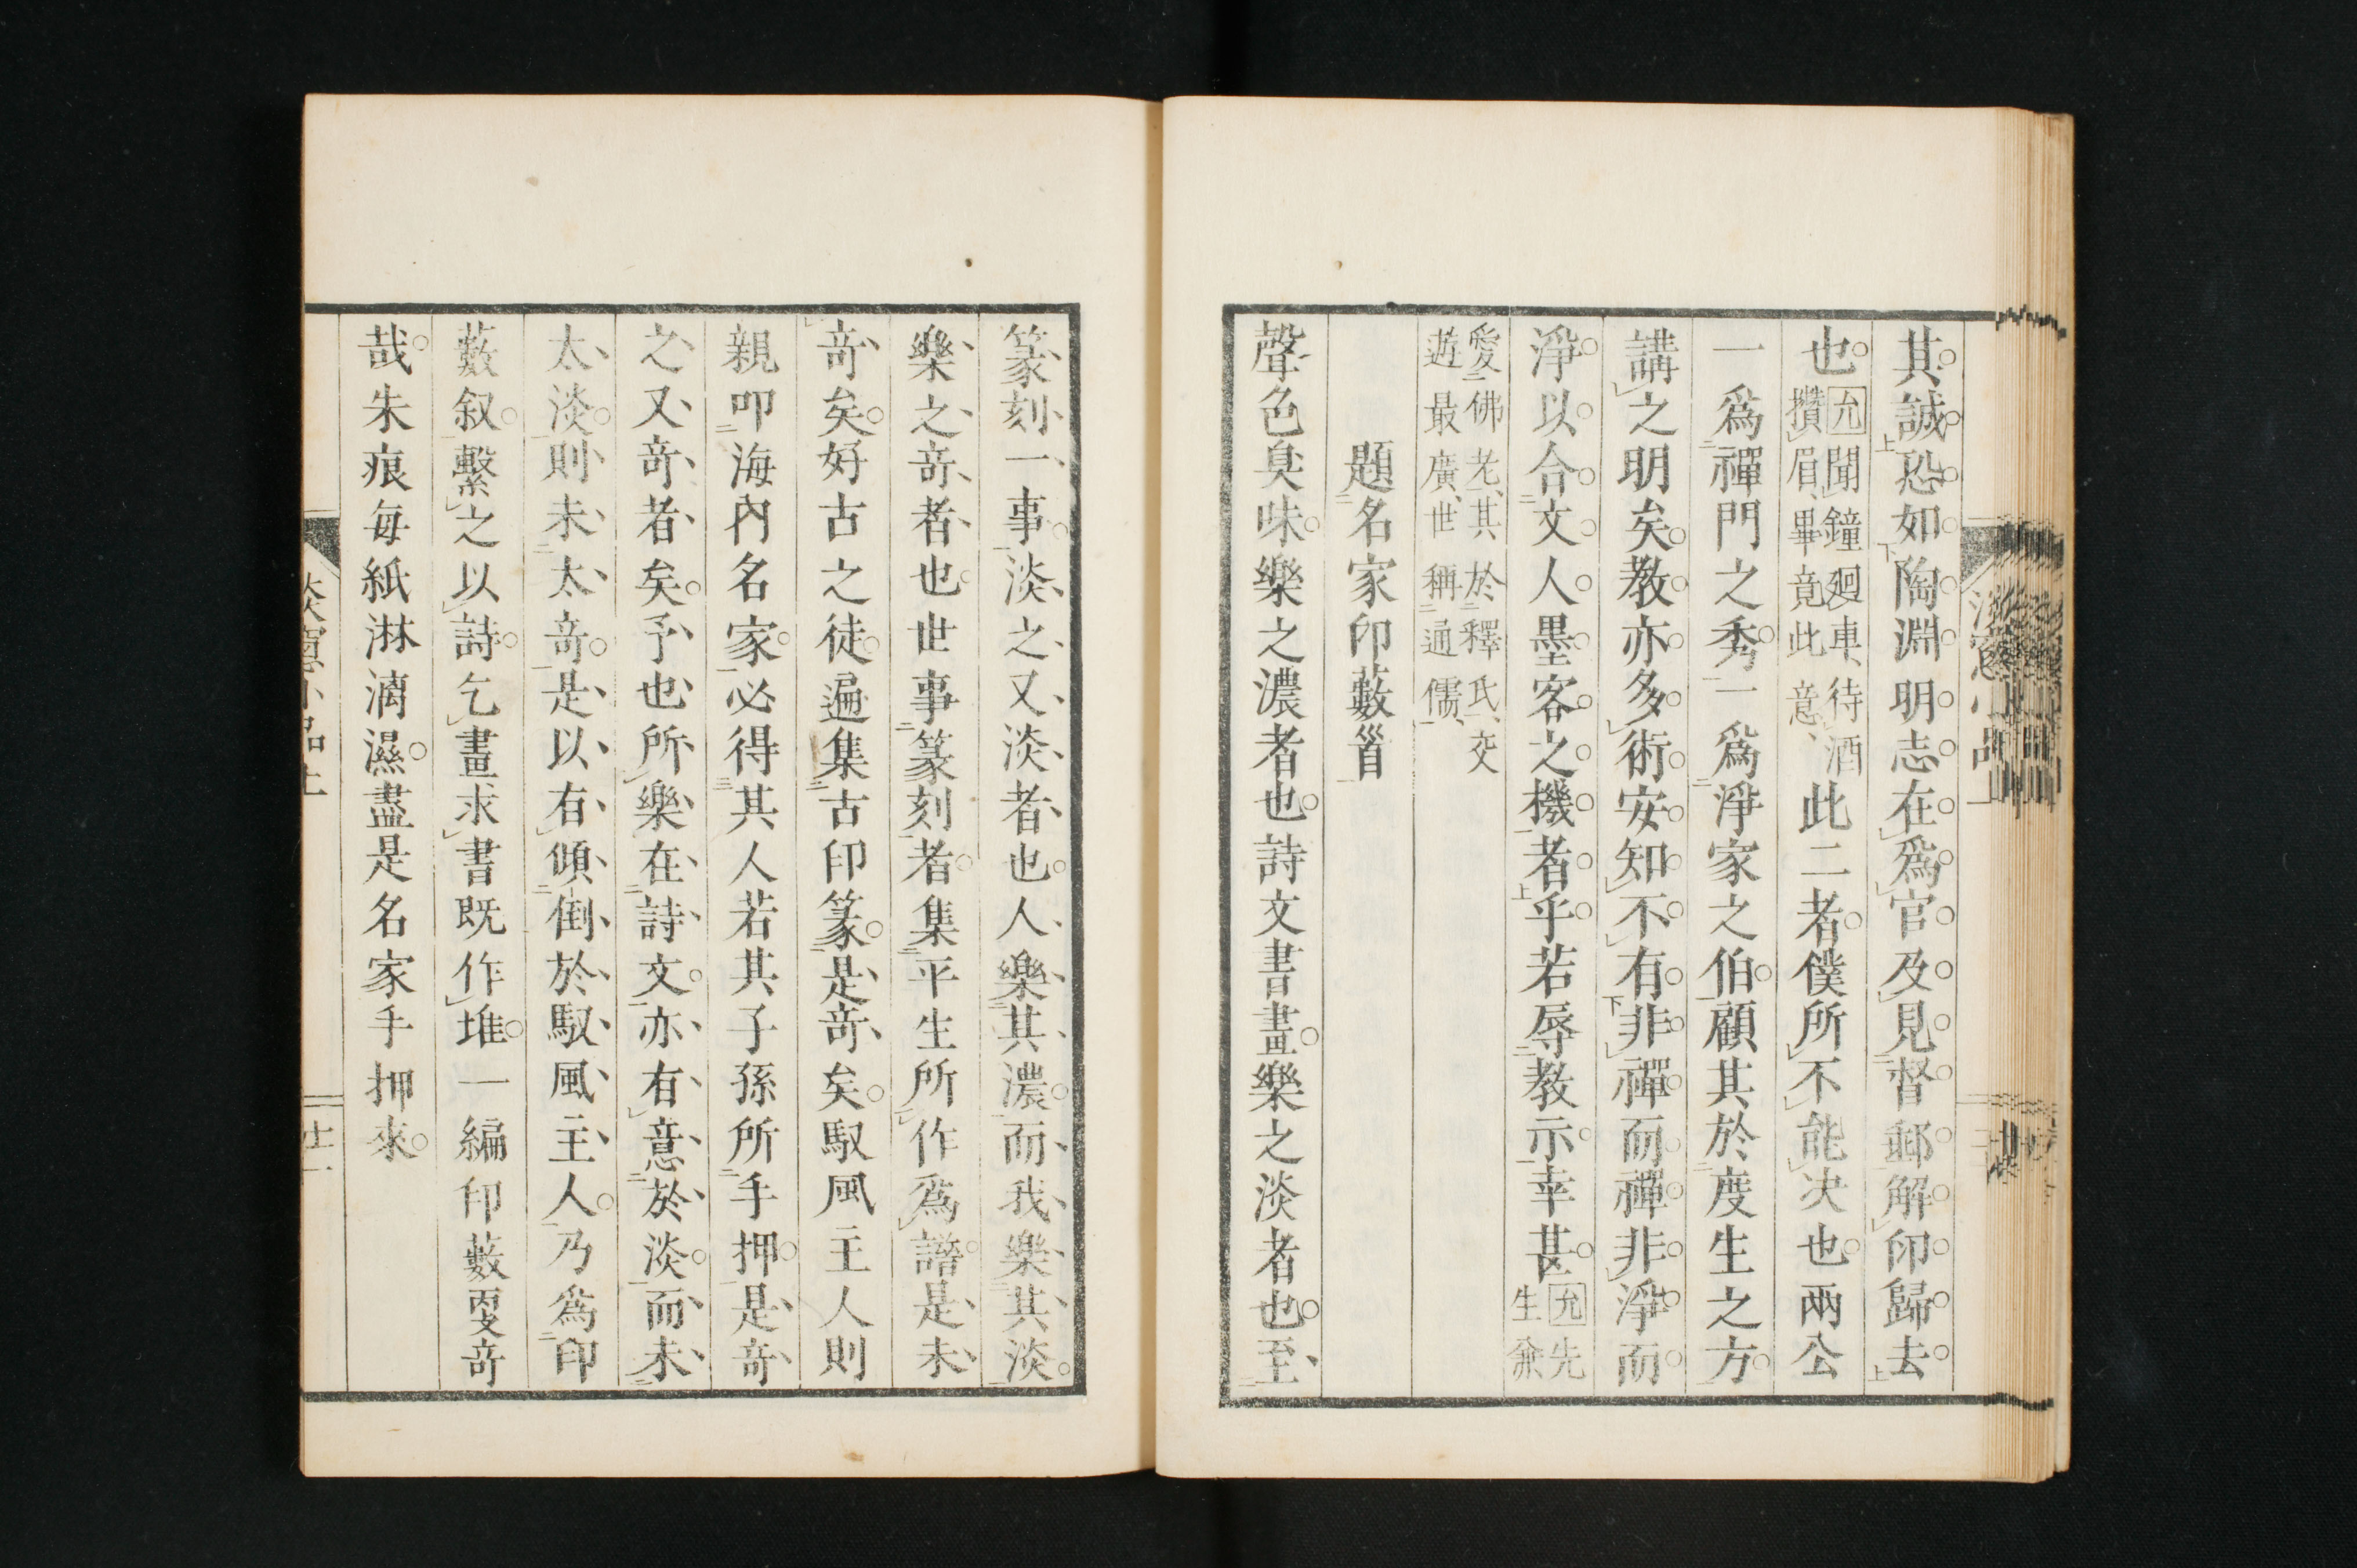 其誠恐如陶淵明志在爲官及見督郵解印歸去
也允聞鐘廻車待酒攢眉畢竟此意此二者僕所不能决也兩公
一爲禪門之秀一爲淨家之伯顧其於度生之方
講之明矣教亦多術安知不有非禪而禪非淨而
淨以合文人墨客之機者乎若辱教示幸甚允先生兼
愛佛老其於釋氏交遊最廣世稱通儒
題名家印藪首
聲色臭味樂之濃者也詩文書畫樂之淡者也至
篆刻一事淡之又淡者也人樂其濃而我樂其淡
樂之竒者也世事篆刻者集平生所作爲譜是未
竒矣好古之徒遍集古印篆是竒矣馭風主人則
親叩海內名家必得其人若其子孫所手押是竒
之又竒者矣予也所樂在詩文亦有意於淡而未
太淡則未太竒是以有傾倒於馭風主人乃爲印
藪叙繫之以詩乞畫求書既作堆一編印藪更竒
哉朱痕每紙淋漓濕盡是名家手押來
淡窻小品上
十一